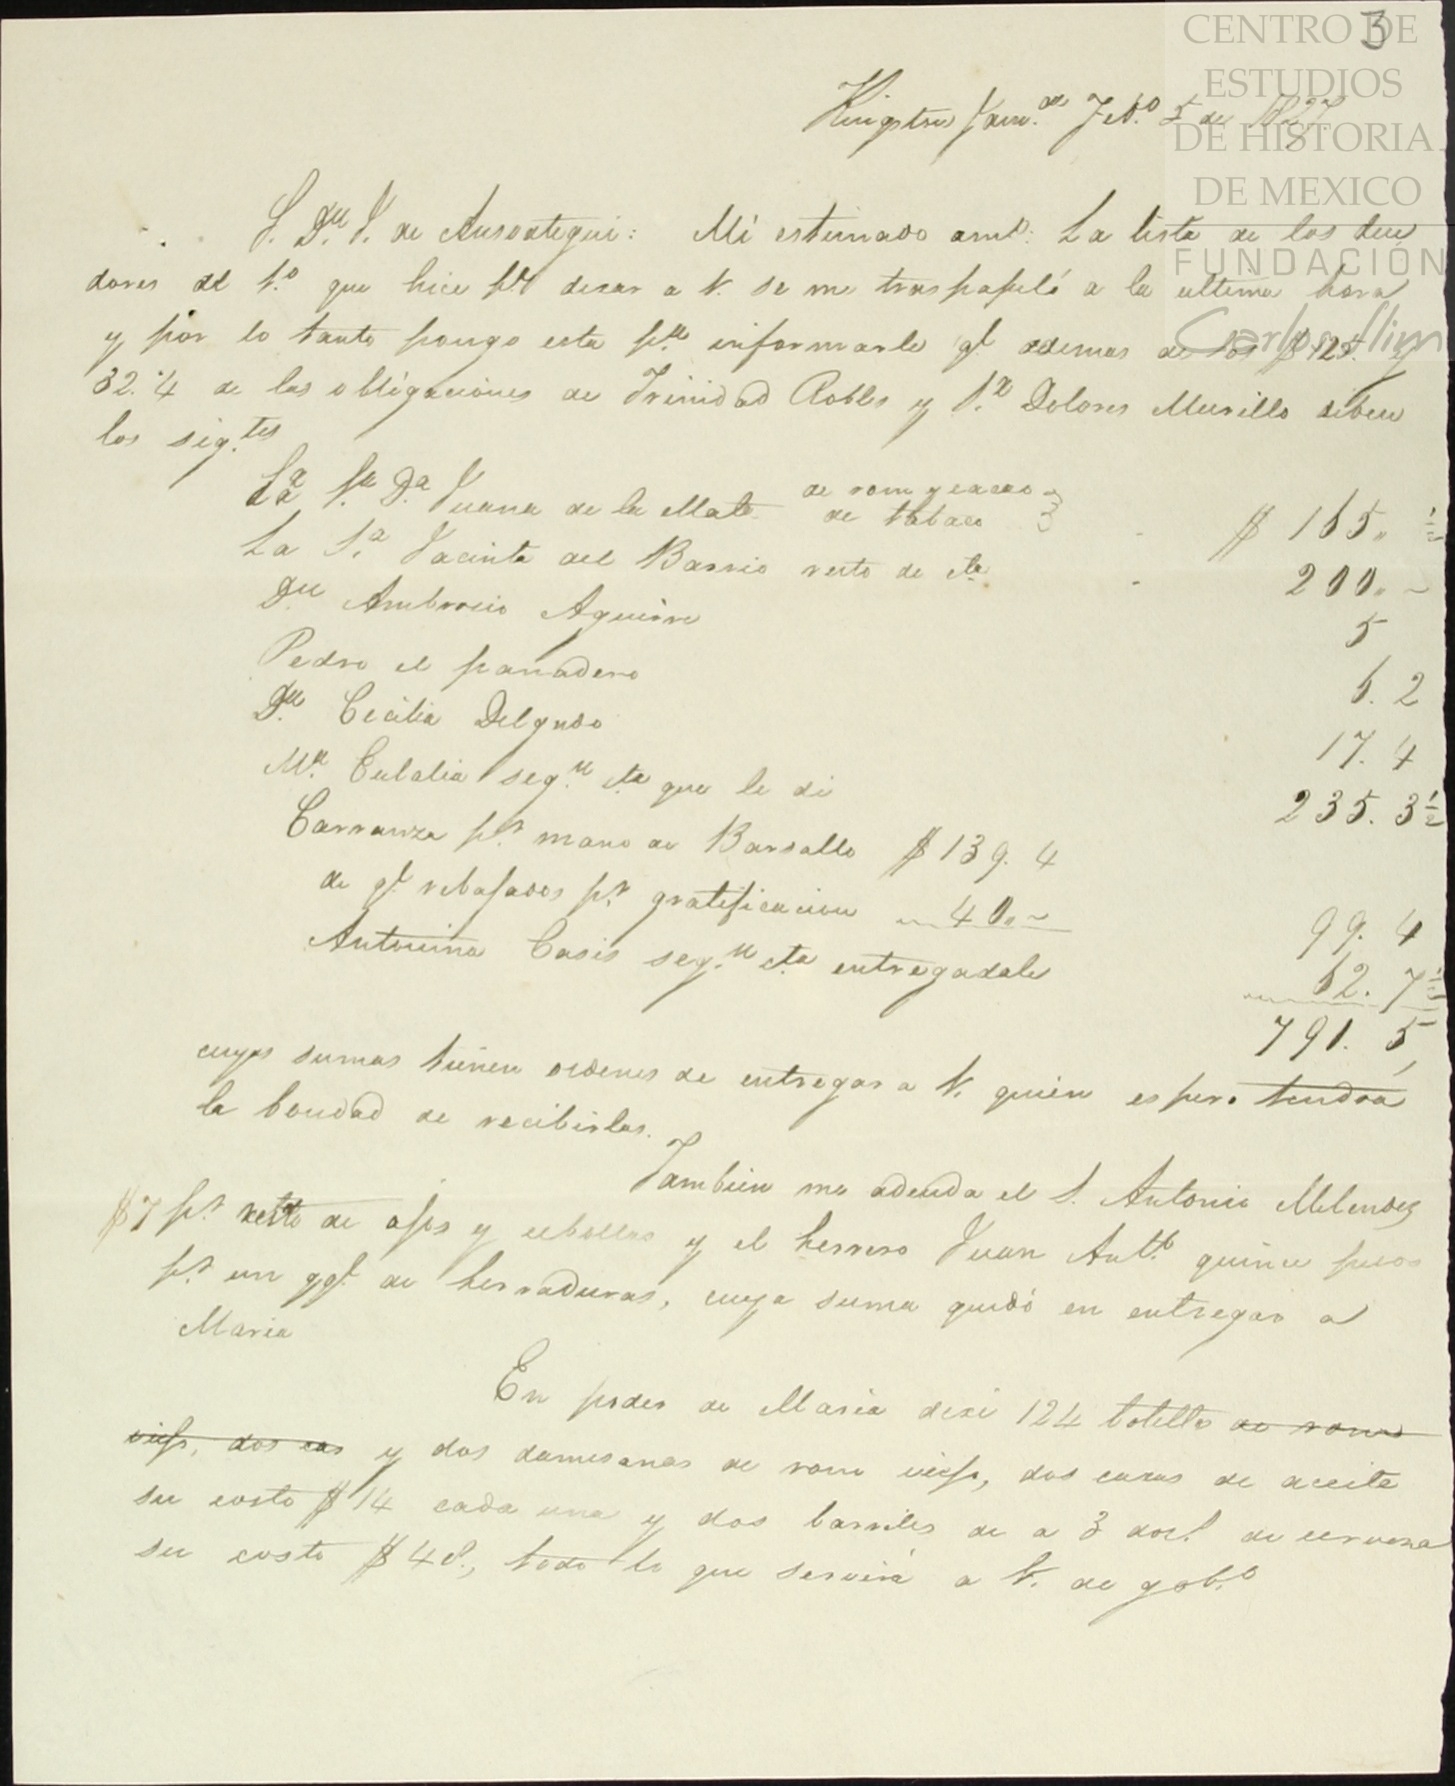 3
CENTRO DE
ESTUDIOS
DE HISTORIA
DE MEXICO
FUNDACIÓN
Carlos Slim
Kingston Jam.ca Feb.o 5 de 1827.
S. Dn J. de Ansoategui: Mi estimado amo: La lista de los deu
dores del que hice pa dexar a V. se me traspapeló a la ultima hora
y por lo tanto pongo esta pa informarle qe ademas de los $ 128. y
32.4 de las obligaciones de Trinidad Robles y Sa Dolores Murillo deben
los sig.tes
La Sra Da Juana de la Mata de rom y cacao
de tabaco $ 165 ½
La S.a Jacinta del Barrio resto de cta 200
Dn Ambrosio Aguirre 5
Pedro el panadero 6. 2
Da Cecilia Delgado 17. 4
Ma Eulalia seg.n cta que le di 235. 3½
Carranza p.r mano de Barsallo $ 139. 4
de qe rebajados p.r gratificacion 40 99. 4
Antonina Casis seg.n cta entregadale 62. 7½
791. 5
cuyas sumas tienen ordenes de entregar a V. quien espero tendrá
la bondad de recibirlas.
Tambien me adeuda el S. Antonio Melendez
$7 p.r resto de ajos y cebollas y el herrero Juan Ant.o quince pesos
p.r un qql de herraduras, cuya suma quedó en entregar a
Maria
En poder de Maria dexé 124 botellas de rom
viejo, dos cas y dos damesanas de rom viejo, dos caxas de aceite
su costo $ 14 cada una y dos barriles de a 3 doc.s de cerveza
su costo $ 48., todo lo que servirá a V. de gob.o